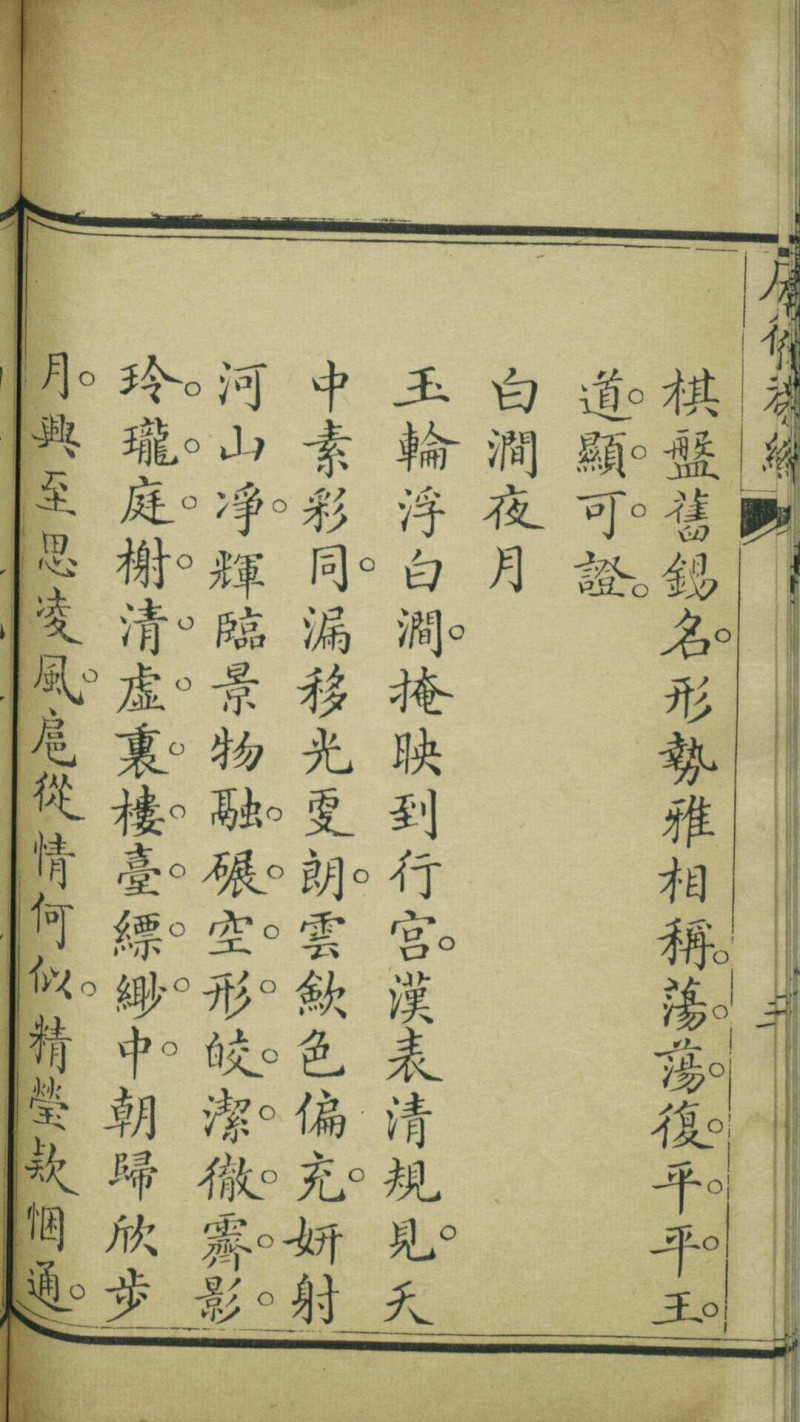 棋盤舊錫名。形勢雅相稱。蕩。蕩。復。平。平。王。
道。顯。可。證。
白澗夜月
玉輪浮白澗。掩映到行宮。漢表清規見。天
中素彩同。漏移光更朗。雲歛色偏充。妍射
河山凈。輝臨景物融。碾。空。形。皎。潔。徹。霽。影。
玲。瓏。庭。榭。清。虛。裏。樓。臺。縹。緲。中。朝歸欣步
月。興至思凌風。扈從情何似。精瑩款悃通。
三